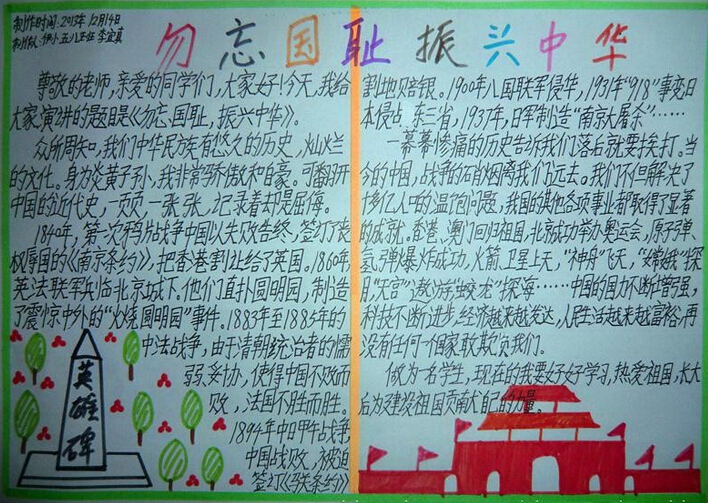 制作时间:2013年12月14日
制作人:伊小五八班 李宜真
勿忘国耻 振兴中华
尊敬的老师,亲爱的同学们,大家好!今天,我给
大家演讲的题目是《勿忘国耻,振兴中华》。
众所周知,我们中华民族有悠久的历史,灿烂
的文化。身为炎黄子孙,我非常骄傲和自豪。可翻开
中国的近代史,一页页,一张张,记录着却是屈辱。
1840年,第一次鸦片战争中国以失败告终,签订了丧
权辱国的《南京条约》,把香港割让给了英国。1860年,
英法联军兵临北京城下。他们直扑圆明园,制造
了震惊中外的“火烧圆明园”事件。1883年至1885年的
中法战争,由于清朝统治者的懦
弱、妥协,使得中国不败而
败,法国不胜而胜。
1894年中日甲午战争,
中国战败,被迫
签订《马关条约》
英雄碑
割地赔银。1900年八国联军侵华,1931年“918”事变日
本侵占东三省,1937年,日军制造“南京大屠杀”……
一幕幕惨痛的历史告诉我们落后就要挨打。当
今的中国,战争的硝烟离我们远去。我们不但解决了
十多亿人口的温饱问题,我国的其他各项事业都取得了显著
的成就。香港、澳门回归祖国,北京成功举办奥运会,原子弹、
氢弹爆炸成功,火箭、卫星上天,“神舟”飞天,“嫦娥”探
月,“天宫”遨游,“蛟龙”探海……中国的国力不断增强,
科技不断进步,经济越来越发达,人民生活越来越富裕,再
没有任何一个国家敢欺负我们。
做为一名学生,现在的我要好好学习,热爱祖国,长大
后为建设祖国贡献大自己的力量。